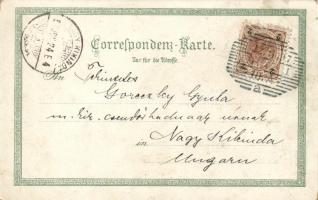 Correspondenz-Karte.
Nur für die Adresse.
An Tekintetes
Goreczky Gyula
m. kir. csendőrhadnagy úrnak
in Nagy Kikinda
Ungarn